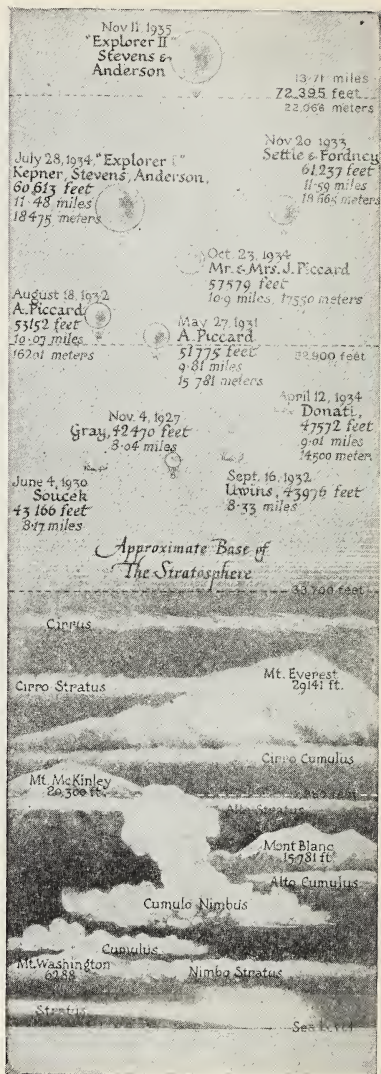 Nov 11, 1935
"Explorer II"
Stevens &
Anderson
13.71 miles
72,395 feet
22,066 meters
Nov 20 1933
Settle & Fordney
61,237 feet
11.59 miles
18,665 meters
July 28, 1934, "Explorer I"
Kepner, Stevens, Anderson,
60,613 feet
11.48 miles
18475 meters
Oct. 23, 1934
Mr. & Mrs. J. Piccard
57579 feet
10.9 miles, 17550 meters
August 18, 1932
A. Piccard
53152 feet
10.07 miles
16201 meters
May 27, 1931
A. Piccard
51775 feet
9.81 miles
15 781 meters
feet
April 12, 1934
Donati,
47572 feet
9.01 miles
14500 meters
Nov. 4, 1927
Gray, 42470 feet
8.04 miles
June 4, 1930
Soucek
43 166 feet
8.17 miles
Sept. 16, 1932
Uwins, 43976 feet
8.33 miles
Approximate Base of
The Stratosphere
feet
Cirrus
Mt. Everest
29141 ft.
Cirro Stratus
Cirro Cumulus
Mt. McKinley
20,300 ft.
feet
Alto Stratus
Mont Blanc
15,781 ft.
Alto Cumulus
Cumulo Nimbus
Cumulus
Mt. Washington
6288
Nimbo Stratus
Stratus
Sea Level